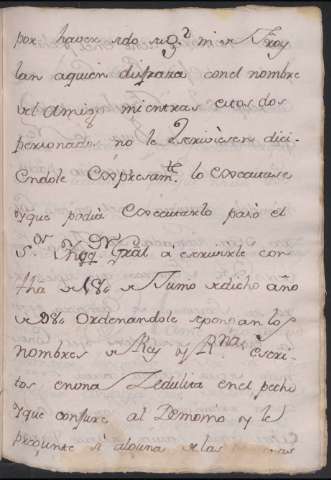 por haver sido su Sr mi Sr Froy
lan aquien disfraza con el nombre
del Amigo mientras estos dos
personados no le escriviesen dici-
endole Expresamte lo executase
y que podia executarlo pasó el
Sor Ynqqdor Gral á escrivirle con
fha de 18 de Junio de dicho año
de 98 Ordenandole se pongan los
nombres de Rey y Rna escri-
tos en una Zedulita en el pecho
y que conjure al Demonio y le
pregunte si alguna de las